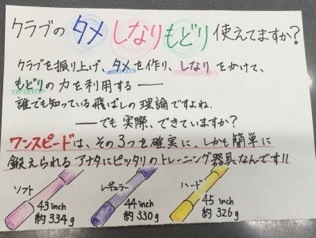 クラブの タメ しなり もどり 使えてますか?
クラブを振り上げ、タメを作り、しなりをかけて、
もどりの力を利用する――
誰でも知っている飛ばしの理論ですよね。
――でも実際、できていますか?
ワンスピードは、その3つを確実に、しかも簡単に
鍛えられるアナタにピッタリのトレーニング器具なんです!!
ソフト
43 inch
約334g
レギュラー
44 inch
約330g
ハード
45 inch
約326g